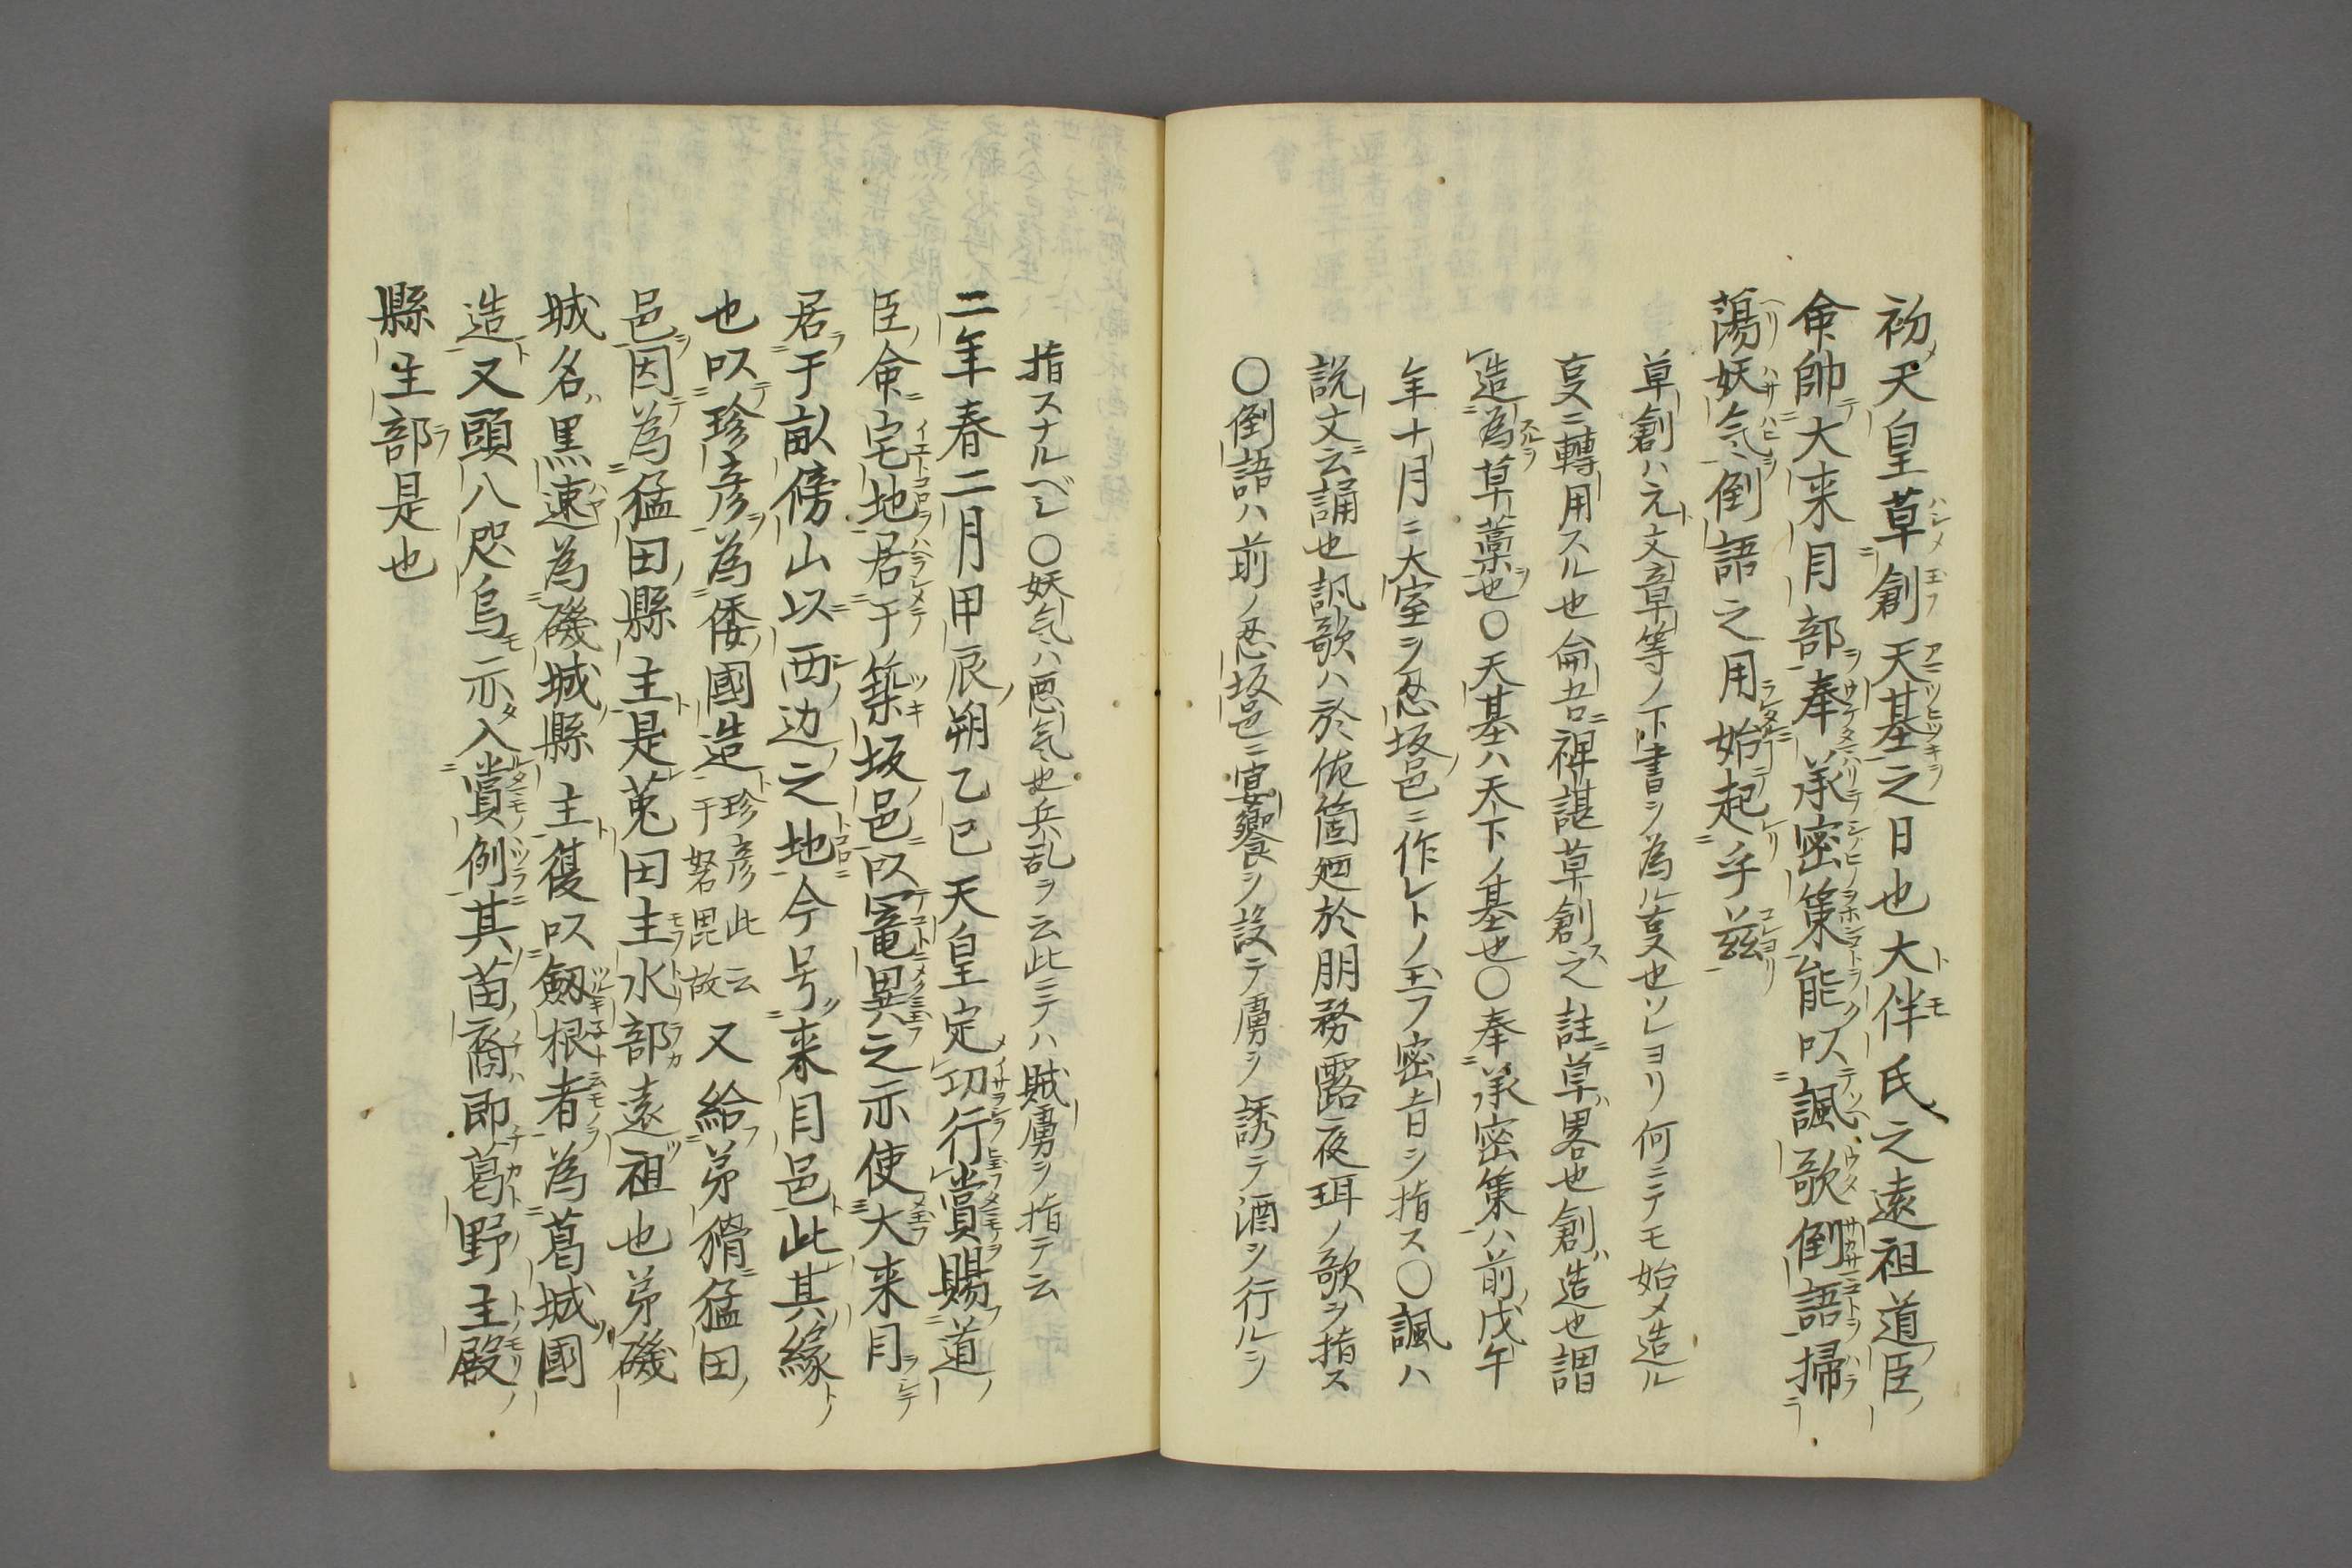 初天皇草創天基之日也大伴氏之遠祖道臣
命帥大来目部奉承密策能以諷歌倒語掃
蕩妖気倒語之用始起乎茲
草創ハ元ト文章等ノ下書ヲ為ル叓也ソレヨリ何ニテモ始メ造ル
叓ニ轉用スル也論語ニ裨諶草創之註ニ草ハ畧也創ハ造也謂
造為草藁也〇天基ハ天下ノ基也〇奉承密策ハ前ノ戊午
年十月ニ大室ヲ忍坂邑ニ作レトノ玉フ密旨ヲ指ス〇諷ハ
説文ニ云誦也諷歌ハ於佐箇廼於朋務露夜珥ノ歌ヲ指ス
〇倒語ハ前ノ忍坂邑ニ宴饗ヲ設テ虜ヲ誘テ酒ヲ行ルヲ
指スナルベシ〇妖気ハ悪気也兵乱ヲ云此ニテハ賊虜ヲ指テ云
二年春二月甲辰朔乙巳天皇定功行賞賜道
臣命宅地居于築坂邑以寵異之亦使大来目
居于畝傍山以西川邊之地今号来目邑此其縁
也以珍彦為倭國造珍彦此云于砮毘故又給弟猾猛田
邑因為猛田縣主是菟田主水部遠祖也弟磯
城名黒速為磯城縣主復以劔根者為葛城國
造又頭八咫烏亦入賞例其苗裔即葛野主殿
縣主部是也